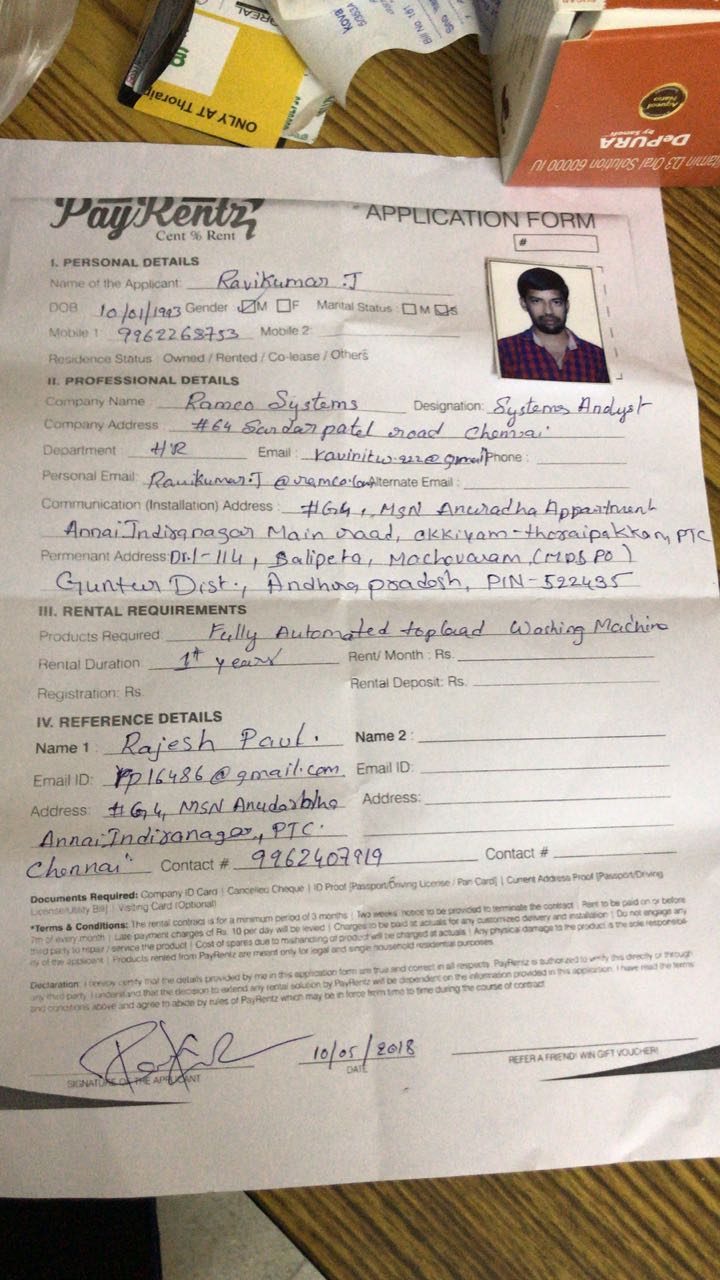 Kova
Bill No 181
ONLY AT Thoraip
DePURA
by Sanofi
Vitamin D3 Oral Solution 60000 IU
PayRentz
Cent % Rent
APPLICATION FORM
#
I. PERSONAL DETAILS
Name of the Applicant: Ravikumar .J
DOB 10/01/1993 Gender ☑M ☐F Marital Status: ☐M ☑S
Mobile 1: 9962268753 Mobile 2:
Residence Status : Owned / Rented / Co-lease / Others
II. PROFESSIONAL DETAILS
Company Name : Ramco Systems Designation: Systems Analyst
Company Address : #64 Sardar patel road Chennai
Department : HR Email : @gmail Phone :
Personal Email: Ravikumar.J @ramco.com Alternate Email :
Communication (Installation) Address : #G4, MSN Anuradha Appartment
Annai Indiranagar Main road, okkiyam-thoraipakkam, PTC
Permenant Address: Dr.1-114, Balipeta, Machavaram (MDS PO)
Guntur Dist., Andhra pradesh, PIN-522435
III. RENTAL REQUIREMENTS
Products Required Fully Automated topload Washing Machine
Rental Duration 1+ years Rent/ Month : Rs.
Registration: Rs. Rental Deposit: Rs.
IV. REFERENCE DETAILS
Name 1 : Rajesh Paul. Name 2 :
Email ID: rp16486@gmail.com Email ID:
Address: #G4, MSN Address:
Annai Indiranagar, PTC.
Chennai Contact # 9962407919 Contact #
Documents Required: Company ID Card | Cancelled Cheque | ID Proof [Passport/Driving License / Pan Card] | Current Address Proof [Passport/Driving
License/Utility Bill] | Visiting Card (Optional)
*Terms & Conditions: The rental contract is for a minimum period of 3 months | Two weeks notice to be provided to terminate the contract | Rent to be paid on or before
7th of every month | Late payment charges of Rs. 10 per day will be levied | Charges to be paid at actuals for any customized delivery and installation | Do not engage any
third party to repair / service the product | Cost of spares due to mishandling of product will be charged at actuals | Any physical damage to the product is the sole responsib-
ity of the applicant | Products rented from PayRentz are meant only for legal and single household residential purposes.
Declaration: I hereby certify that the details provided by me in this application form are true and correct in all respects. PayRentz is authorized to verify this directly or through
any third party. I understand that the decision to extend any rental solution by PayRentz will be dependent on the information provided in this application. I have read the terms
and conditions above and agree to abide by rules of PayRentz which may be in force from time to time during the course of contract.
10/05/2018
SIGNATURE OF THE APPLICANT DATE REFER A FRIEND! WIN GIFT VOUCHER!